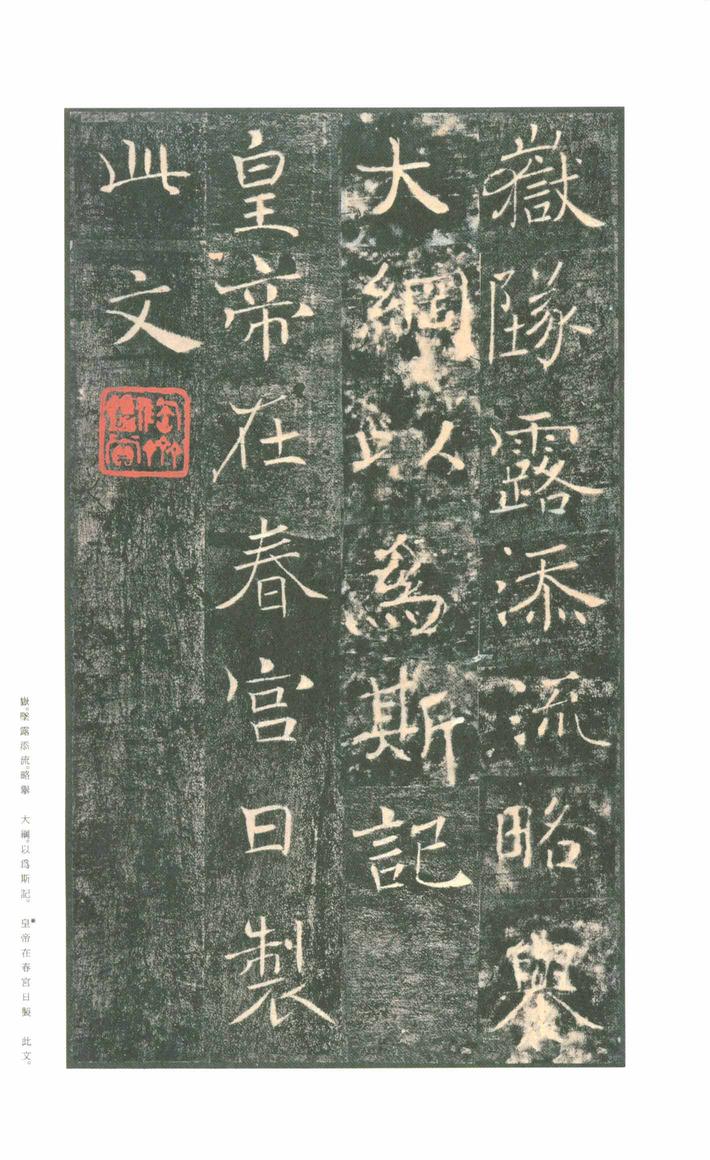 嶽墜露添流略舉
大綱以爲斯記
皇帝在春宮日製
此文
嶽墜露添流略舉 大綱以爲斯記 皇帝在春宮日製 此文